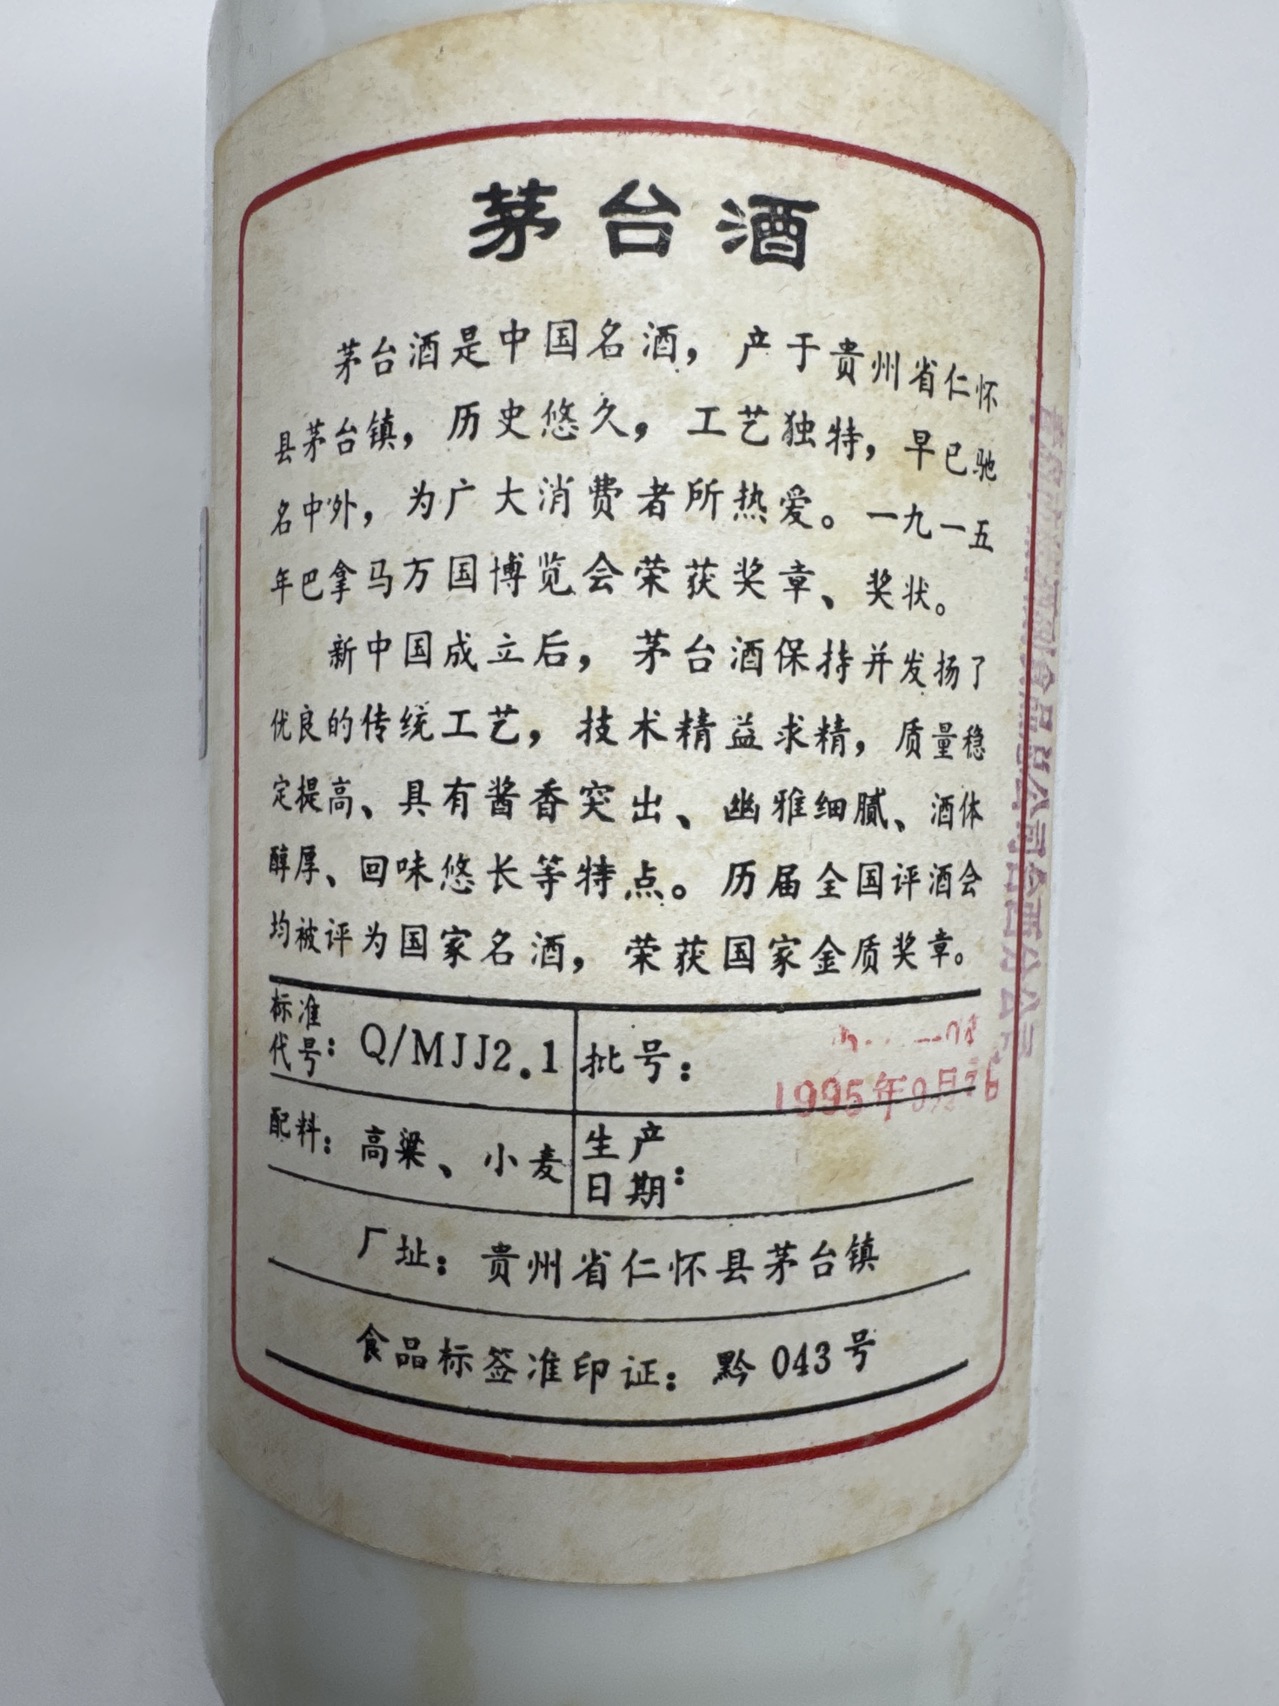 茅台酒
茅台酒是中国名酒，产于贵州省仁怀
县茅台镇，历史悠久，工艺独特，早已驰
名中外，为广大消费者所热爱。一九一五
年巴拿马万国博览会荣获奖章、奖状。
新中国成立后，茅台酒保持并发扬了
优良的传统工艺，技术精益求精，质量稳
定提高、具有酱香突出、幽雅细腻、酒体
醇厚、回味悠长等特点。历届全国评酒会
均被评为国家名酒，荣获国家金质奖章。
标准代号：Q/MJJ2.1 批号：
1995年9月26
配料：高粱、小麦 生产日期：
厂址：贵州省仁怀县茅台镇
食品标签准印证：黔043号